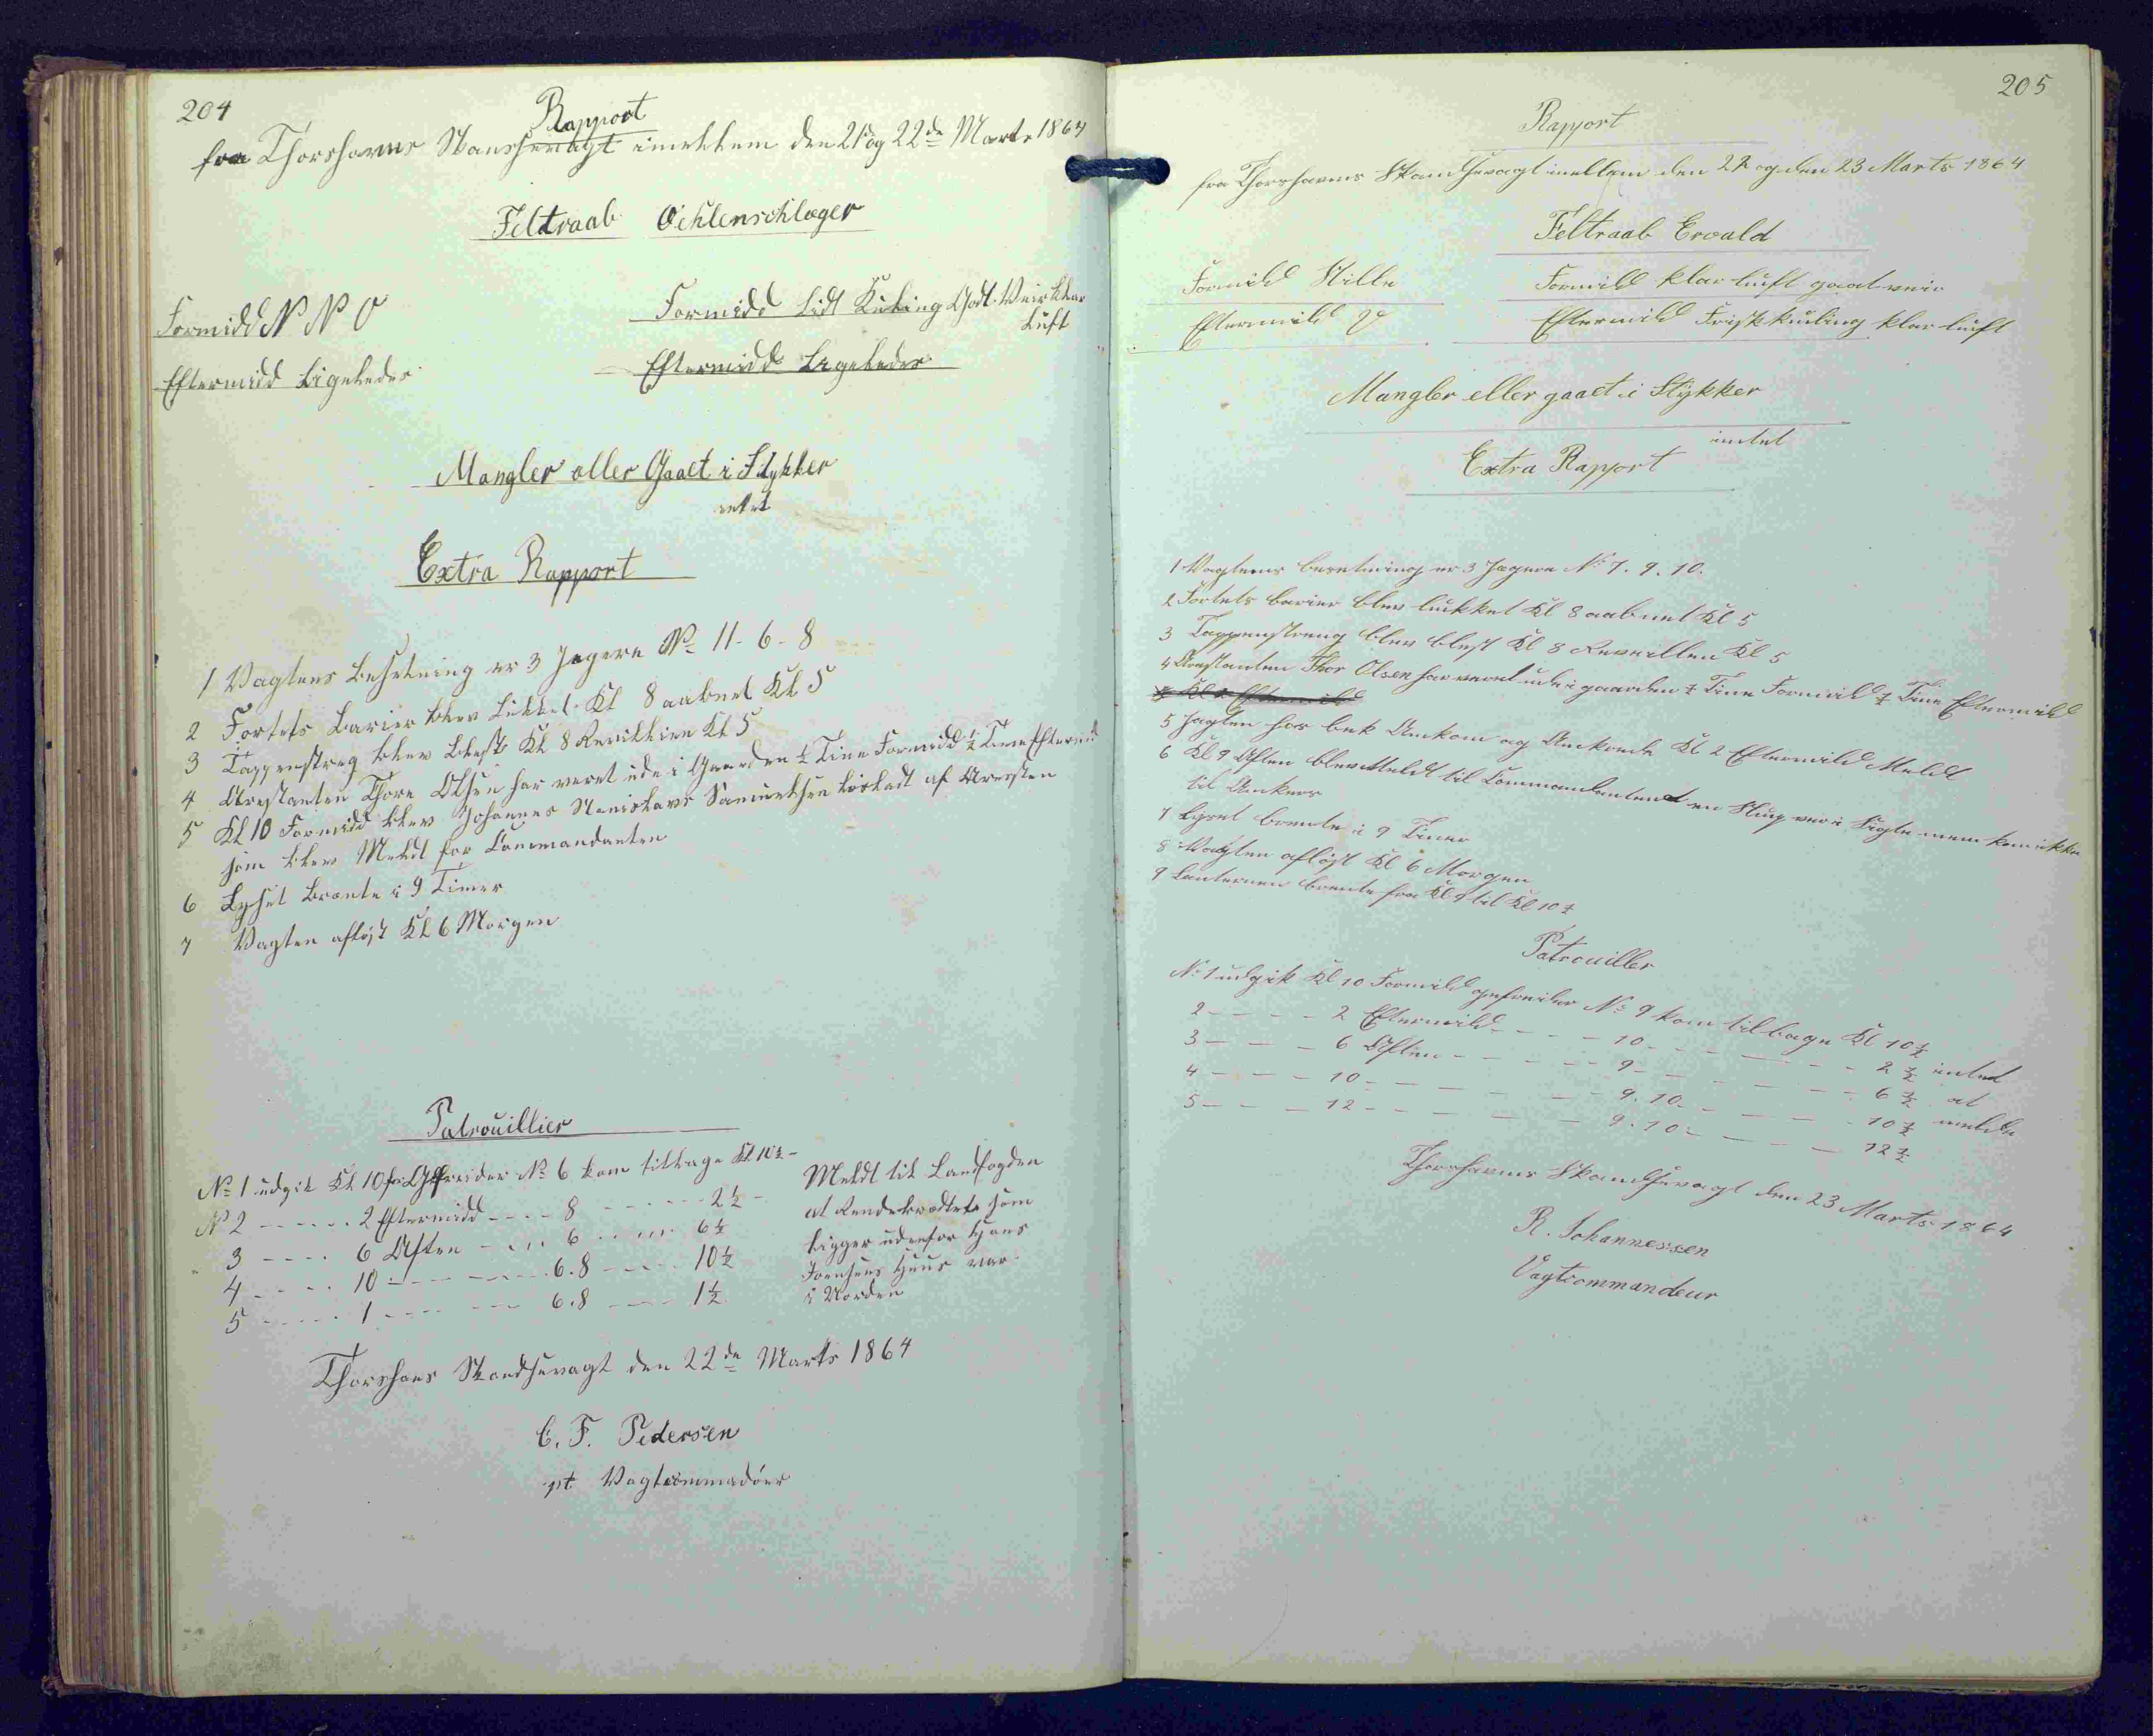 204
Rapport
fra Thorshavns Skansevagt imellem den 21 og 22de Marts 1864
Feltraab Öehlenschlæger
Formidd N N O
Formidd Lidt Kuling Godt Veir klar
Luft
Eftermidd Ligeledes
Eftermidd Ligeledes
Mangler eller Gaaet i Stykker
intet
Extra Rapport
1 Vagtens Besetning er 3 Jegere No 11-6-8
2 Fortets Barier blev Lukket Kl 8 aabnet Kl 5
3 Tappenstreg blev Blest Kl 8 Revillien Kl 5
4 Arestanten Thore Olsen har veret ude i Gaarden ½ Time Formidd ½ Time Eftermid
5 Kl 10 Formidd blev Johannes Stanislaus Samuelsen løsladt af Aresten
som blev Meldt for Commandanten
6 Lyset Brænte i 9 Timer
7 Vagten afløst Kl 6 Morgen
Patrouillier
No 1 udgik Kl 10 fo Gefreider No 6 kom tilbage Kl 10½ -
No 2 - - - - - - 2 Eftermidd - - - - 8 - - - - - - 2½ -
3 - - - - 6 Aften - - - 6 - - - - - 6½
4 - - - - - 10 - - - - - - - - 6.8 - - - - - 10½
5 - - - - - - 1 - - - - - - - 6.8 - - - - 1½
Meldt til Landfogden
at Rendebrodtet som
ligger udenfor Hans
Joensens Huus var
i Uorden
Thorshans Skandsevagt den 22de Marts 1864
C. F. Pedersen
pt Vagtcommadóer
205
Rapport
fra Thorshavns Skandsevagt imellem den 22 og den 23 Marts 1864
Feltraab Ewald
Formidd Stille
Formidd klar luft godt veir
Eftermidd V
Eftermidd Frisk kuling klar luft
Mangler eller gaaet i Stykker
intet
Extra Rapport
1 Vagtens besetning er 3 Jægere No 7. 9. 10.
2 Fortets barier blev lukket Kl 8 aabnet Kl 5
3 Tappenstreng blev blest Kl 8 Reveillen Kl 5
4 Arestanten Thor Olsen har veret ude i gaarden ½ Time Formidd ½ Time Eftermidd
5 Jagten hos bek Ankom og Ankrede Kl 2 Eftermidd Meldt
6 Kl 9 Aften blev Meldt til Commandanten at en Slup var i Sigte men kom ikke
til Ankers
7 Lyset brente i 9 Timer
8 Vagten afløst Kl 6 Morgen
9 Lanternen brente fra Kl 9 til Kl 10½
Patrouiller
No 1 udgik Kl 10 Formidd gefreider No 9 kom tilbage Kl 10½
2 - - - - 2 Eftermidd - - - - 10 - - - - - - - - 2½ intet
3 - - - 6 Aften - - - - - - 9 - - - - - - - - 6½ at
4 - - - - 10 - - - - - - - 9. 10 - - - - - - 10½ melde
5 - - - - 12 - - - - - - - 9. 10 - - - - - 12½
Thorshavns Skandsevagt den 23 Marts 1864
R. Johannessen
Vagtcommandeur